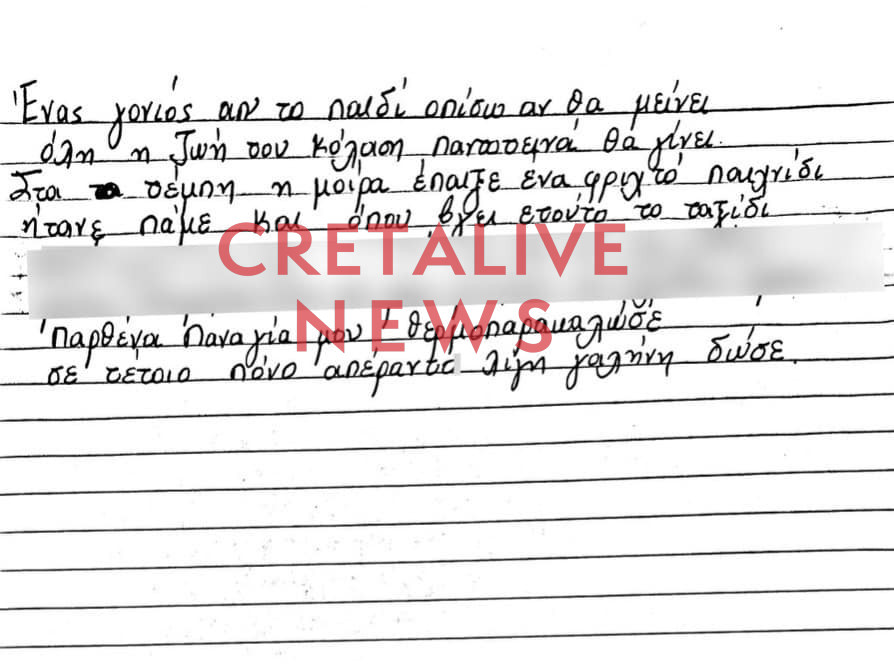 Ένας γονιός απ το παιδί οπίσω αν θα μείνει
όλη η ζωή του κόλαση παντοτεινά θα γίνει.
Στα τέμπη η μοίρα έπαιξε ένα φριχτό παιχνίδι
ήτανε πάμε και όπου βγει ετούτο το ταξίδι
CRETALIVE
NEWS
Παρθένα Παναγία μου θερμοπαρακαλώσε
σε τέτοιο πόνο απέραντο λίγη γαλήνη δώσε.